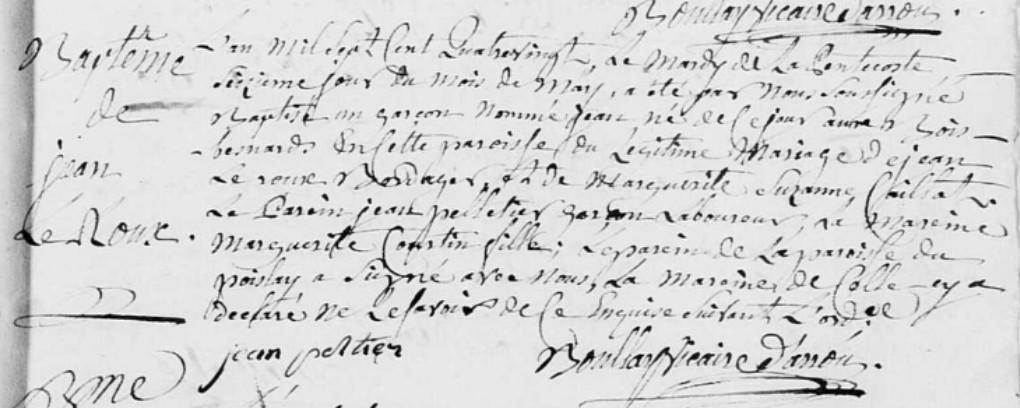 Boullay Vicaire d'arrou.
Baptême
de
jean
Le Roux.
L'an mil sept Cent Quatrevingt, Le Mardy de La Pentecoste
Seizieme jour du mois de May, a été par nous soussigné
Baptisé un garçon nommé jean né de ce jour aux Bois
besnards En cette paroisse, du Légitime Mariage de jean
Le roux Bordager et de Marguerite Suzanne
Le Parein jean pelletier garçon Laboureur, La Mareine
Marguerite Courtin fille, Le parein de La paroisse du
poislay a signé avec nous, La Mareine de Celle cy a
declaré ne Le savoir de Ce Enquise suivant L'ord.ce
jean peltier
Boullay Vicaire d'arrou.